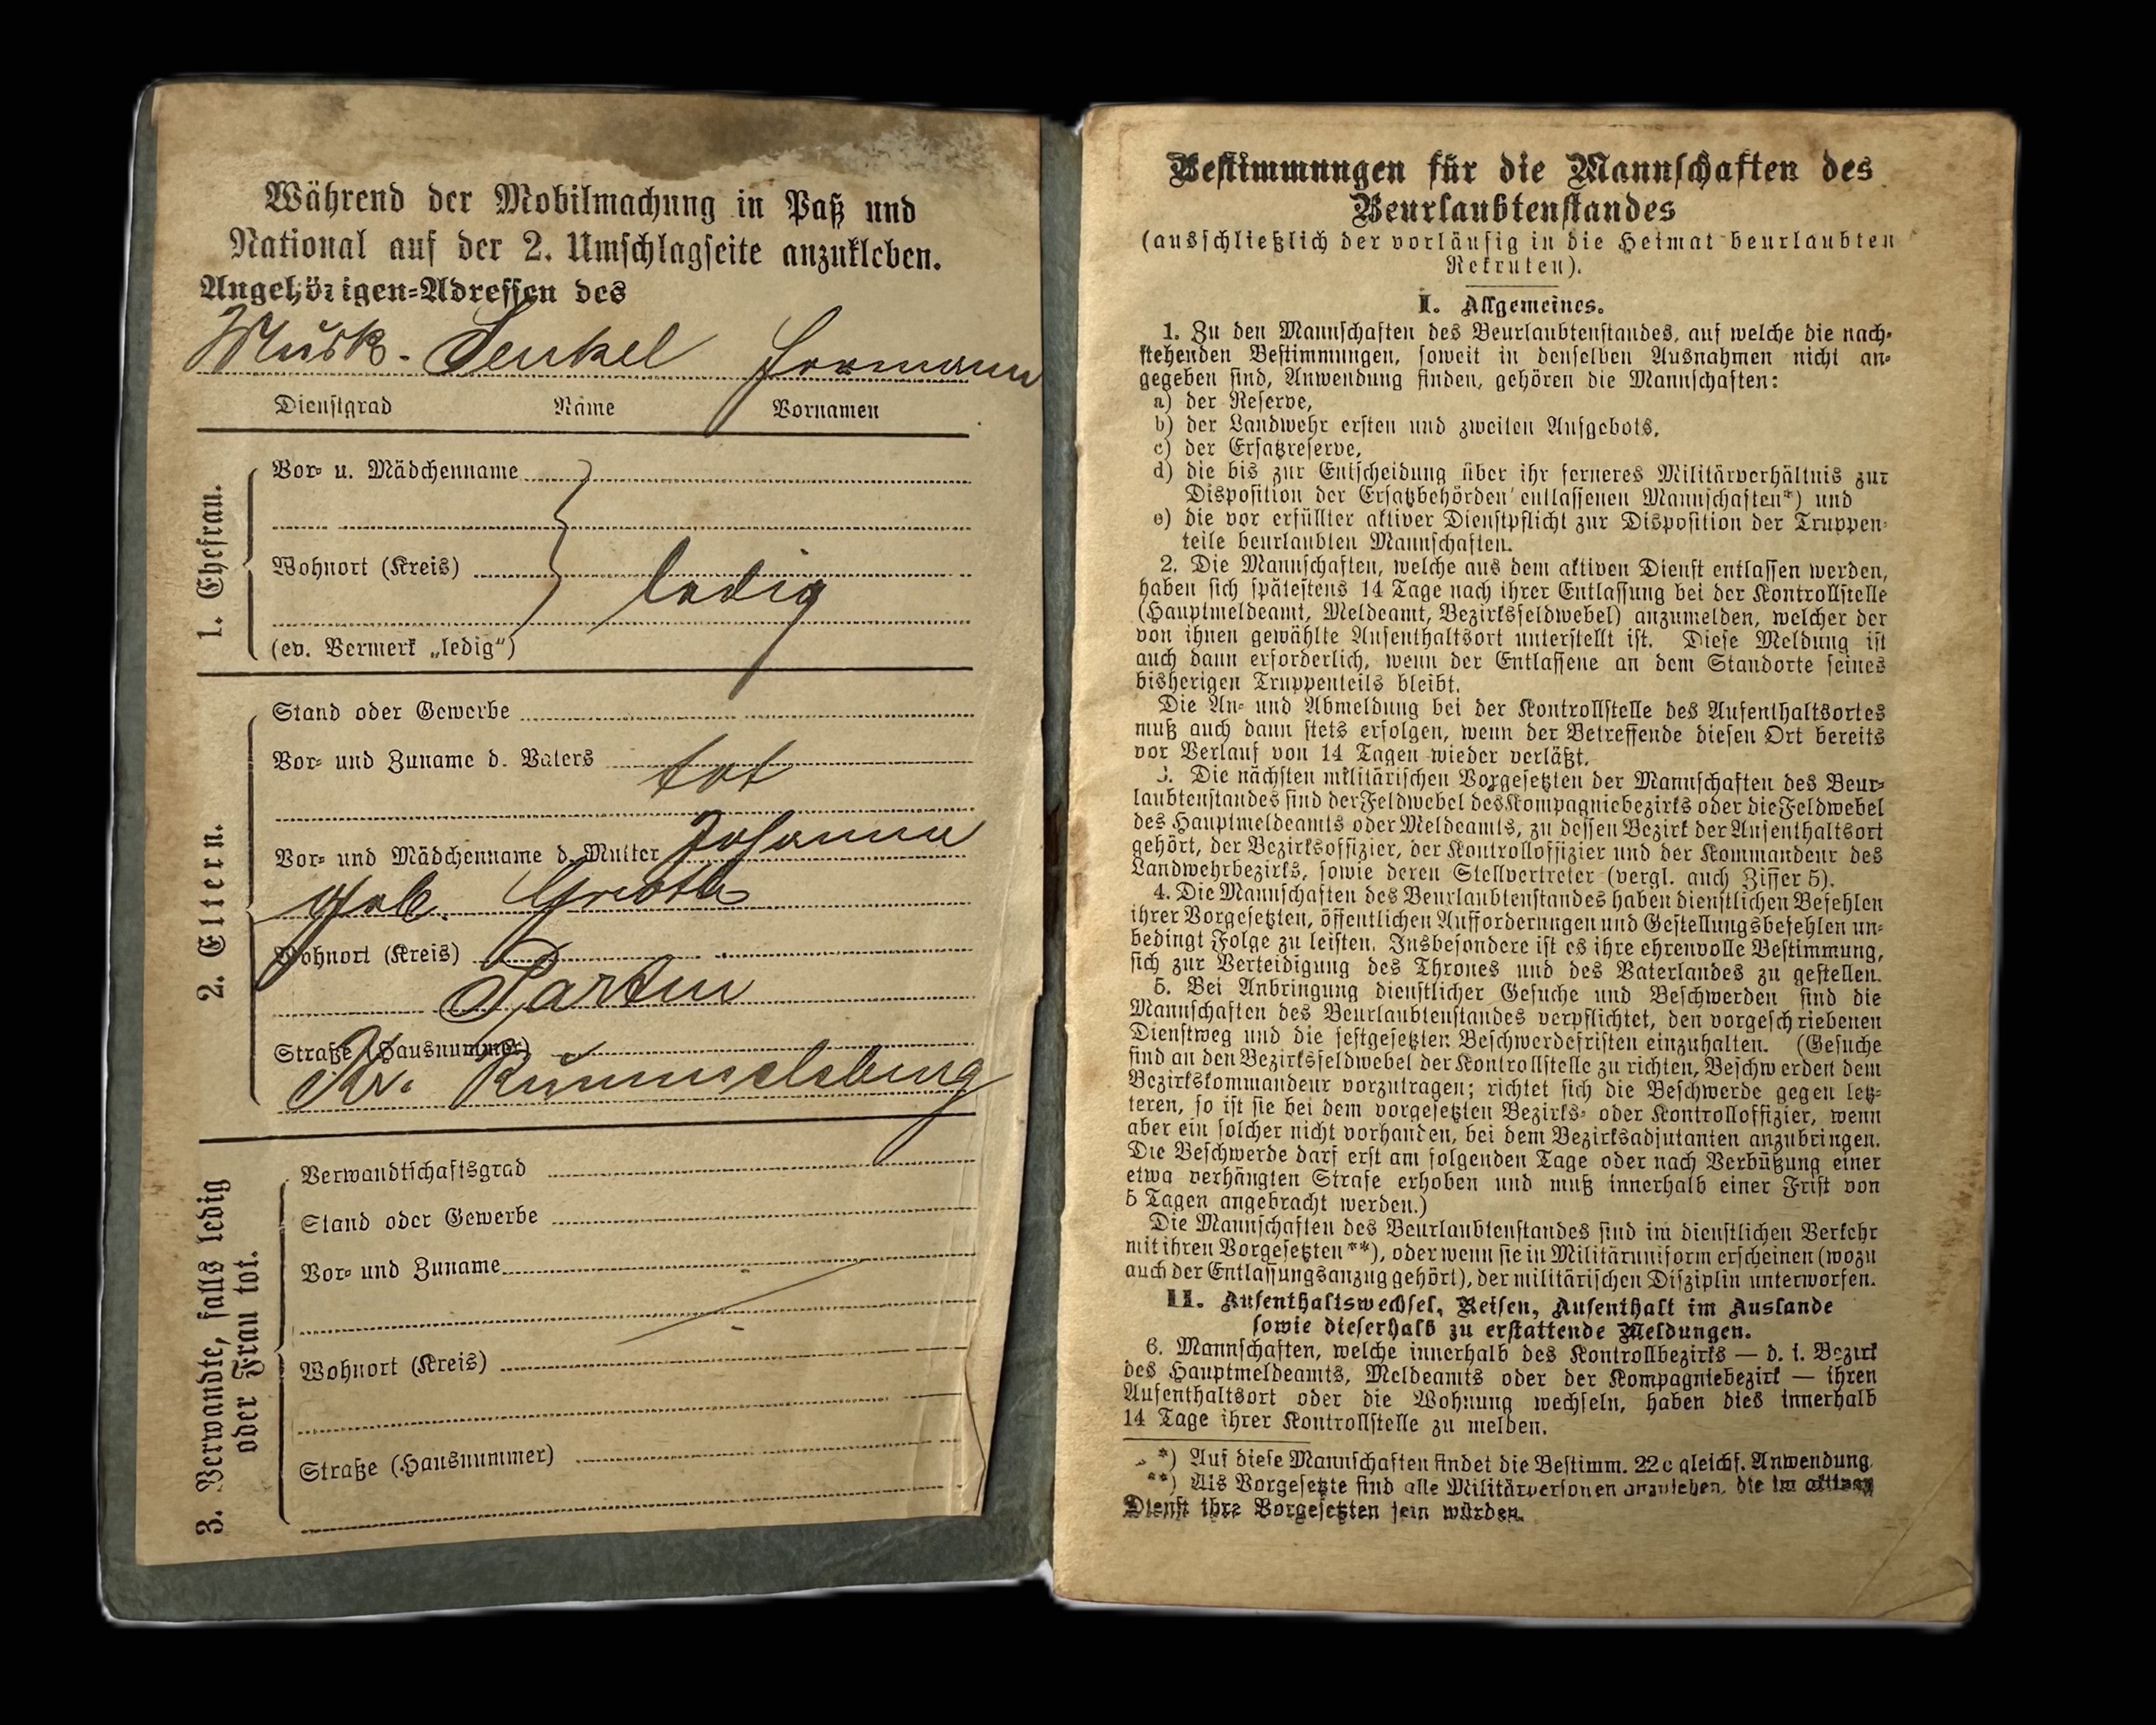 Während der Mobilmachung in Paß und
National auf der 2. Umschlagseite anzukleben.
Angehörigen-Adressen des
Musk. Henkel Hermann
Dienstgrad Name Vornamen
1. Ehefrau.
Vor- u. Mädchenname
Wohnort (Kreis)
ledig
(ev. Vermerk „ledig“)
2. Eltern.
Stand oder Gewerbe
Vor- und Zuname d. Vaters
tot
Vor- und Mädchenname d. Mutter Johanne
geb.
Wohnort (Kreis)
Straße (Hausnummer)
Kr. Rummelsburg
3. Verwandte, falls ledig
oder Frau tot.
Verwandtschaftsgrad
Stand oder Gewerbe
Vor- und Zuname
Wohnort (Kreis)
Straße (Hausnummer)
Bestimmungen für die Mannschaften des
Beurlaubtenstandes
(ausschließlich der vorläufig in die Heimat beurlaubten
Rekruten).
I. Allgemeines.
1. Zu den Mannschaften des Beurlaubtenstandes, auf welche die nach-
stehenden Bestimmungen, soweit in denselben Ausnahmen nicht an-
gegeben sind, Anwendung finden, gehören die Mannschaften:
a) der Reserve,
b) der Landwehr ersten und zweiten Aufgebots,
c) der Ersatzreserve,
d) die bis zur Entscheidung über ihr ferneres Militärverhältnis zur
Disposition der Ersatzbehörden entlassenen Mannschaften*) und
e) die vor erfüllter aktiver Dienstpflicht zur Disposition der Truppen-
teile beurlaubten Mannschaften.
2. Die Mannschaften, welche aus dem aktiven Dienst entlassen werden,
haben sich spätestens 14 Tage nach ihrer Entlassung bei der Kontrollstelle
(Hauptmeldeamt, Meldeamt, Bezirksfeldwebel) anzumelden, welcher der
von ihnen gewählte Aufenthaltsort unterstellt ist. Diese Meldung ist
auch dann erforderlich, wenn der Entlassene an dem Standorte seines
bisherigen Truppenteils bleibt.
Die An- und Abmeldung bei der Kontrollstelle des Aufenthaltsortes
muß auch dann stets erfolgen, wenn der Betreffende diesen Ort bereits
vor Verlauf von 14 Tagen wieder verläßt.
3. Die nächsten militärischen Vorgesetzten der Mannschaften des Beur-
laubtenstandes sind der Feldwebel des Kompagniebezirks oder die Feldwebel
des Hauptmeldeamts oder Meldeamts, zu dessen Bezirk der Aufenthaltsort
gehört, der Bezirksoffizier, der Kontrolloffizier und der Kommandeur des
Landwehrbezirks, sowie deren Stellvertreter (vergl. auch Ziffer 5).
4. Die Mannschaften des Beurlaubtenstandes haben dienstlichen Befehlen
ihrer Vorgesetzten, öffentlichen Aufforderungen und Gestellungsbefehlen un-
bedingt Folge zu leisten. Insbesondere ist es ihre ehrenvolle Bestimmung,
sich zur Verteidigung des Thrones und des Vaterlandes zu gestellen.
5. Bei Anbringung dienstlicher Gesuche und Beschwerden sind die
Mannschaften des Beurlaubtenstandes verpflichtet, den vorgeschriebenen
Dienstweg und die festgesetzten Beschwerdefristen einzuhalten. (Gesuche
sind an den Bezirksfeldwebel der Kontrollstelle zu richten, Beschwerden dem
Bezirkskommandeur vorzutragen; richtet sich die Beschwerde gegen letz-
teren, so ist sie bei dem vorgesetzten Bezirks- oder Kontrolloffizier, wenn
aber ein solcher nicht vorhanden, bei dem Bezirksadjutanten anzubringen.
Die Beschwerde darf erst am folgenden Tage oder nach Verbüßung einer
etwa verhängten Strafe erhoben und muß innerhalb einer Frist von
5 Tagen angebracht werden.)
Die Mannschaften des Beurlaubtenstandes sind im dienstlichen Verkehr
mit ihren Vorgesetzten**), oder wenn sie in Militäruniform erscheinen (wozu
auch der Entlassungsanzug gehört), der militärischen Disziplin unterworfen.
II. Aufenthaltswechsel, Reisen, Aufenthalt im Auslande
sowie dieserhalb zu erstattende Meldungen.
6. Mannschaften, welche innerhalb des Kontrollbezirks — d. i. Bezirk
des Hauptmeldeamts, Meldeamts oder der Kompagniebezirk — ihren
Aufenthaltsort oder die Wohnung wechseln, haben dies innerhalb
14 Tage ihrer Kontrollstelle zu melden.
*) Auf diese Mannschaften findet die Bestimm. 22c gleichf. Anwendung.
**) Als Vorgesetzte sind alle Militärpersonen anzusehen, die im aktiven
Dienst ihre Vorgesetzten sein würden.